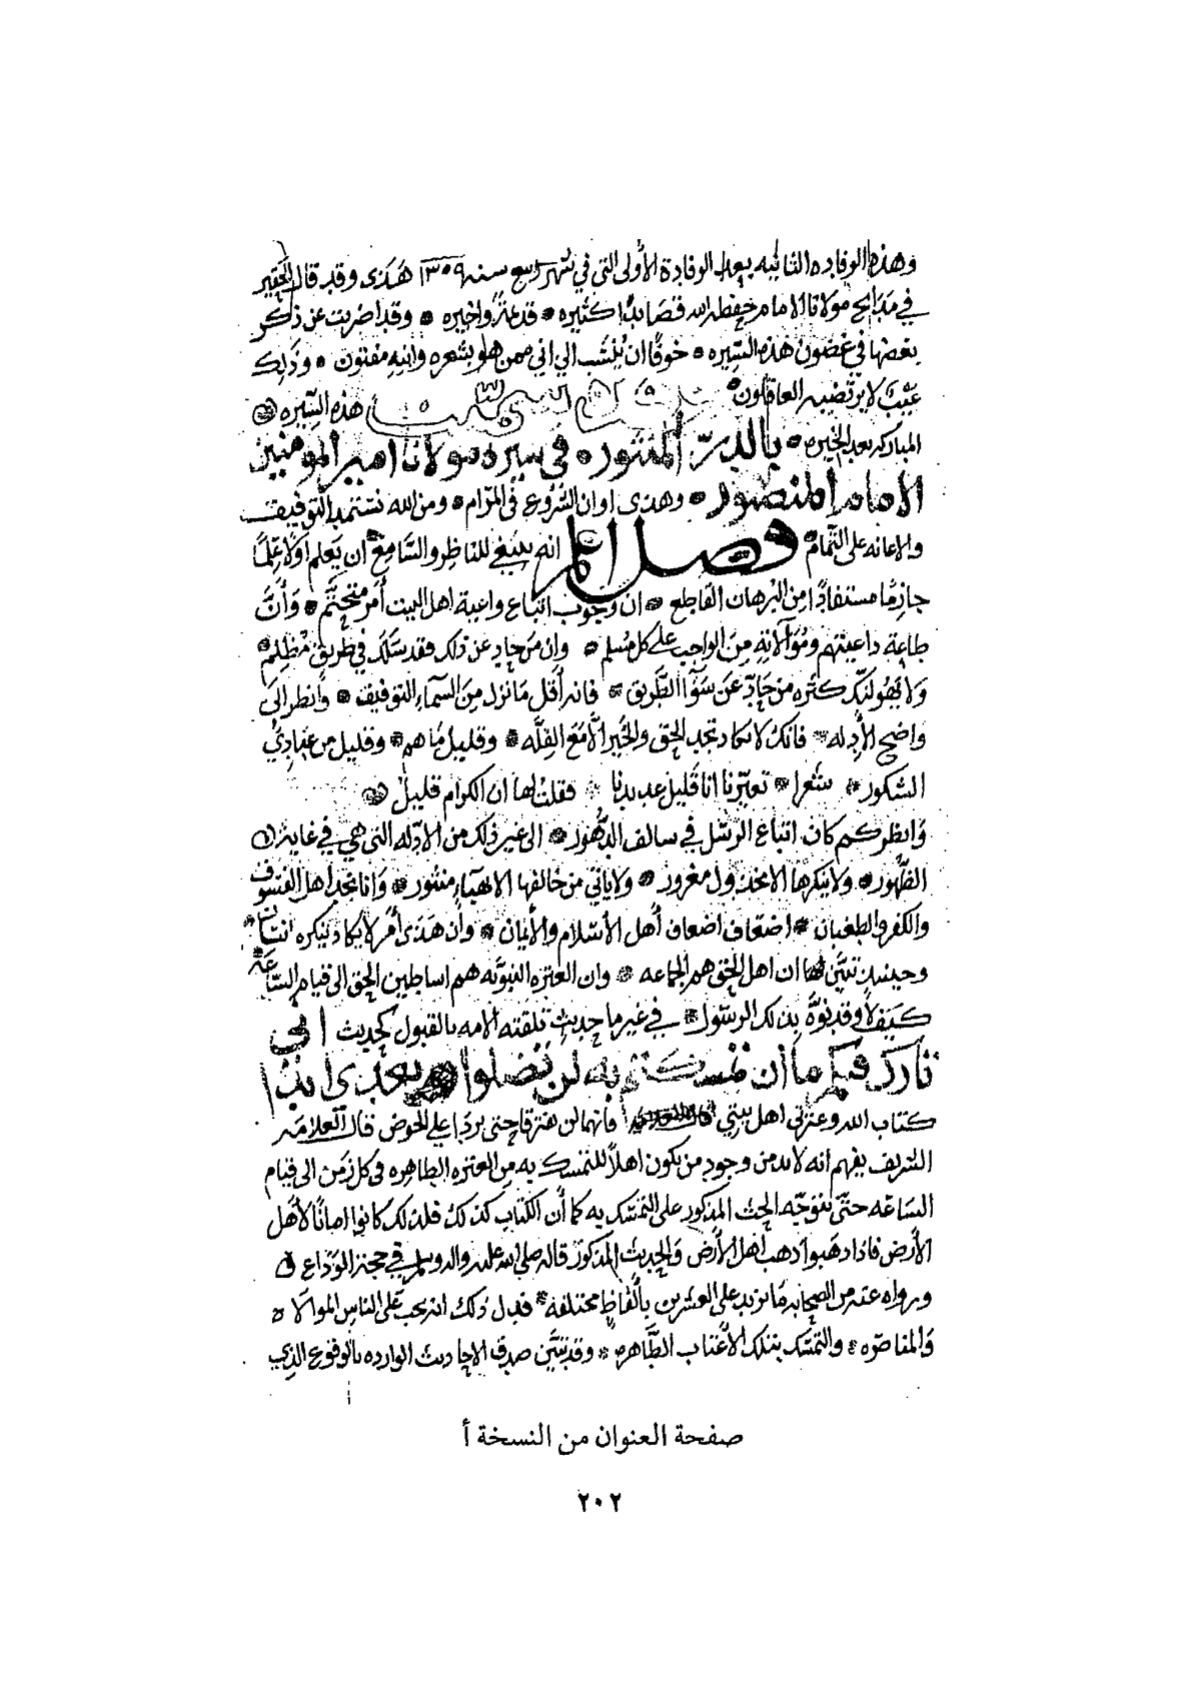 وهذه الوفاده الثانيه بعد الوفادة الأولى التي في شهر ربيع سنه ١٣٠٩ هذى وقد قال الحقير
في مدايح مولانا الامام حفظه الله قصائدًا كثيره قديمةً واخيره وقد اضربت عن ذكر
بعضها في غضون هذه السيره خوفًا ان يُنسَب الي اني ممن هو بشعره وابنه مفتون وذلك
عيبٌ لا يرتضيه العاقلون هذه السيره
المباركه بعد الخيره بالدرّ المنثوره في سيرة مولانا امير المومنين
الامام المنصور وهذى اوان الشروع في المرام ومن الله نستمد التوفيق
والاعانه على التمام فصل اعلم انه ينبغي للناظر والسامع ان يَعلم اولا عِلمًا
جازمًا مستفادًا من البُرهان القاطع ان وجوب اتباع واعية اهل البيت أمر متحتّم وأنّ
طاعة داعيتهم وموآلاته مِنَ الواجب على كل مُسلم وانّ من حاد عن ذلك فقد سَلَك في طريق مُظلِم
ولا يهُولنّك كثره من حَادّ عن سَوآ الطّريق فانه أقل ما نزل مِنَ السمآء التوفيق وانظر الى
واضح الأدله فانك لا تكاد تجد الحق والخير الّا مع القِلّه وقليلٌ ما هم وقليل من عبادي
الشكور شعرا تعيّرنا انا قليل عديدنا فقلت لها ان الكرام قليلُ
وانظر كم كان اتباع الرسل في سالف الدّهُور الى غير ذلك من الادّله التي هي في غاية
الظّهور ولا ينكرها الا مخذول مغرور ولا ياتي من خالفها الا هبآء منثور وانا نجد اهل الفسوق
والكفر والطغيان اضعاف اضعاف أهل الأسلام والأيمان وان هذى أمر لا يكاد ينكره انسان
وحينئذٍ تبيّن لها ان اهل الحق هم الجماعه وان العتره النبويّه هم اساطين الحق الى قيام السّاعَه
كيف لا وقد نوّهَ بذلك الرسول في غير ما حديثٍ تلقته الامه بالقبول كحديث اني
تارك فيكم ما أن تمسكتم به لن تضلوا بعدى ابدًا
كتاب الله وعترتي اهل بيتي فانهما لن يفترقا حتى يردا علي الحوض قال العلامه
الشريف يفهم انه لا بد من وجود من يكون اهلاً للتمسك به من العتره الطاهره في كل زمن الى قيام
الساعه حتّى يتوجّه الحث المذكور على التمسك به كما أن الكتاب كذلك فلذلك كانوا امانًا لأهل
الأرض فاذا ذهبوا ذهب اهل الأرض والحديث المذكور قاله صلى الله عليه واله وسلم في حجة الوداع
ورواه عنه من الصحابه ما يزيد على العشرين بألفاظٍ مختلفه فدل ذلك انه يجب على الناس الموالاه
والمناصره والتمسك بتلك الأعتاب الطّاهره وقد تبيّن صدق الاحاديث الوارده بالوقوع الذي
صفحة العنوان من النسخة أ
٢٠٢